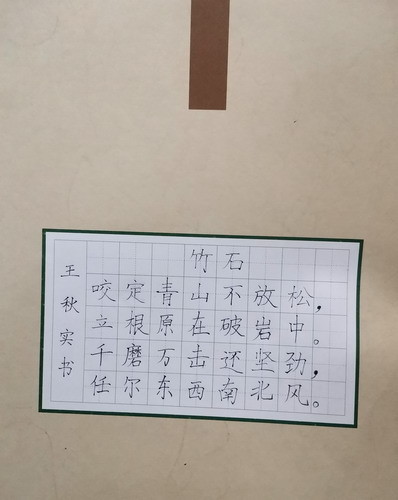 竹石
咬定青山不放松，
立根原在破岩中。
千磨万击还坚劲，
任尔东西南北风。
王秋实书